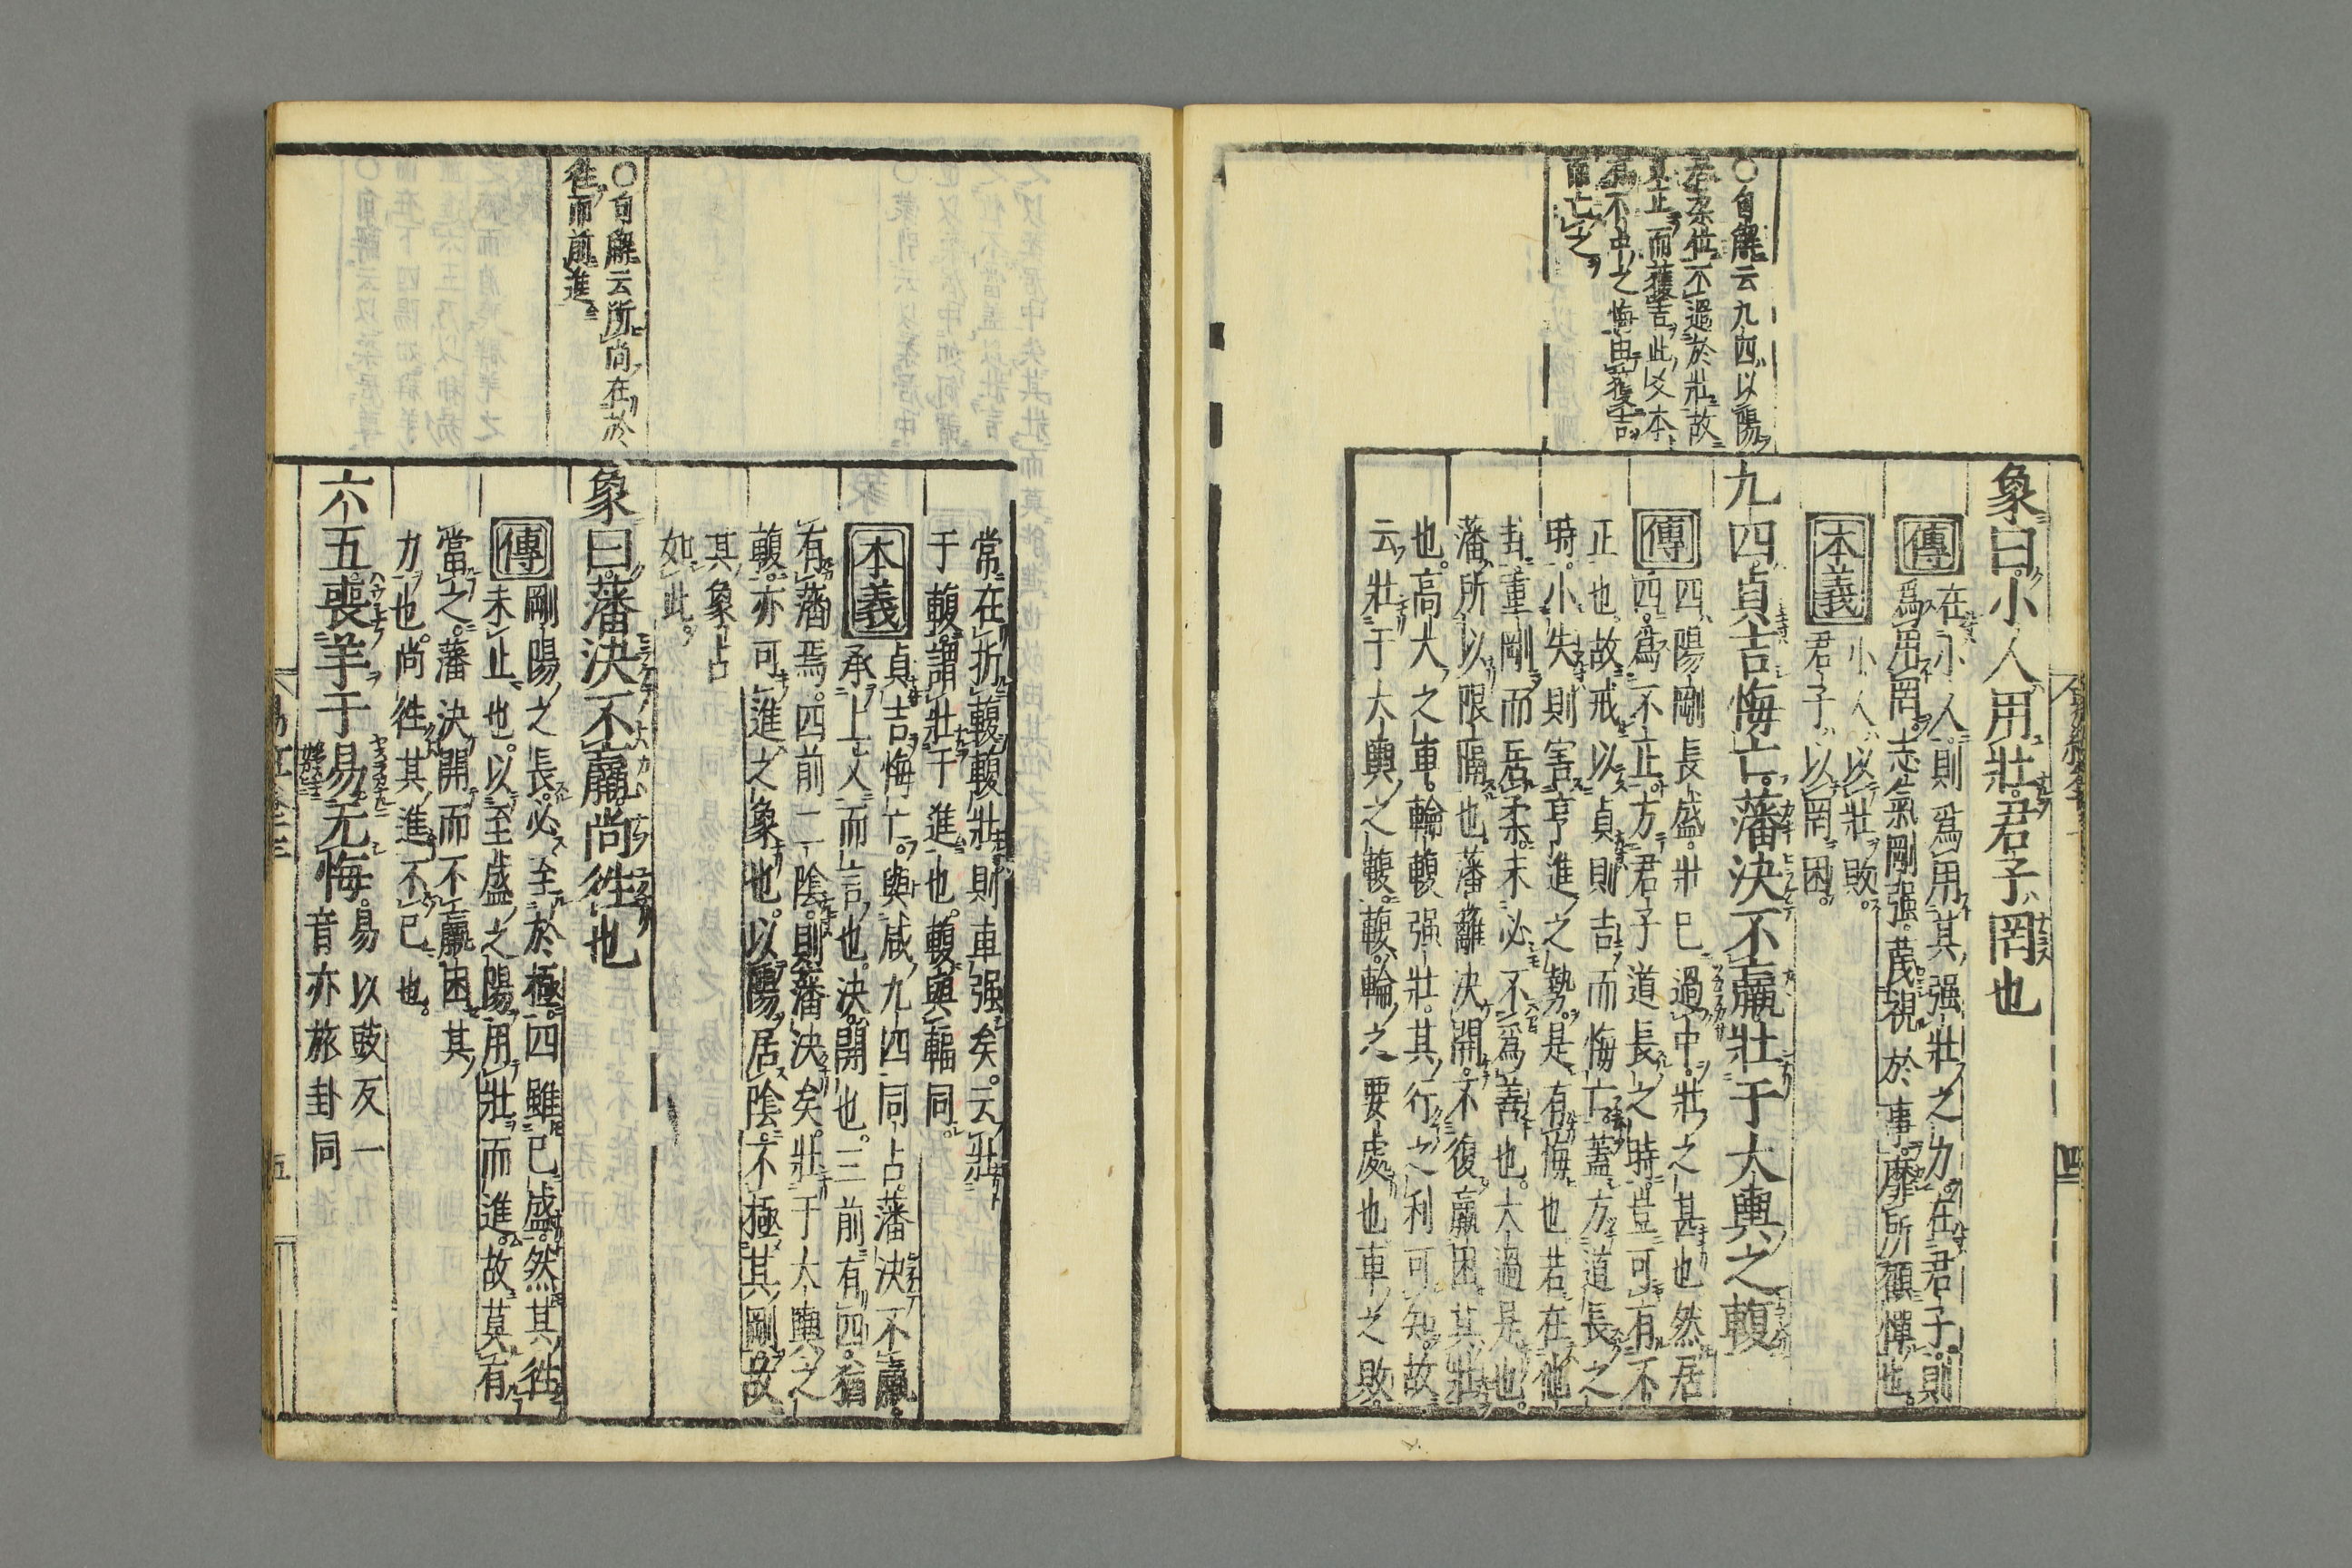 象曰小人用壯君子罔也
傳在小人則爲用其强壯之力在君子則
爲用罔志氣剛强蔑視於事靡所顧憚也
本義小人以壯敗
君子以罔困
九四貞吉悔亡藩決不羸壯于大輿之輹
傳四陽剛長盛壯已過中壯之甚也然居
四爲不正方君子道長之時豈可有不
正也故戒以貞則吉而悔亡蓋方道長之
時小失則害亨進之勢是有悔也若在他
卦重剛而居柔未必不爲善也大過是也
藩所以限隔也藩籬決開不復羸困其壯
也高大之車輪輹强壯其行之利可知故
云壯于大輿之輹輹輪之要處也車之敗
〇自解云九四以陽
居柔位不過於壯故
貞正而獲吉此爻本
爲不中之悔由獲吉
而亡之
四
常在折輹輹壯則車强矣云壯
于輹謂壯于進也輹與輻同
本義貞吉悔亡與咸九四同占藩決不羸
承上文而言也決開也三前有四猶
有藩焉四前二陰則藩決矣壯于大輿之
輹亦可進之象也以陽居陰不極其剛故
其象占
如此
象曰藩決不羸尚徃也
傳剛陽之長必至於極四雖已盛然其徃
未止也以至盛之陽用壯而進故莫有
當之藩決開而不羸困其
力也尚徃其進不已也
六五喪羊于易无悔易以豉反一
音亦旅卦同
〇自解云所尚在於
徃而前進
易經卷之三
五